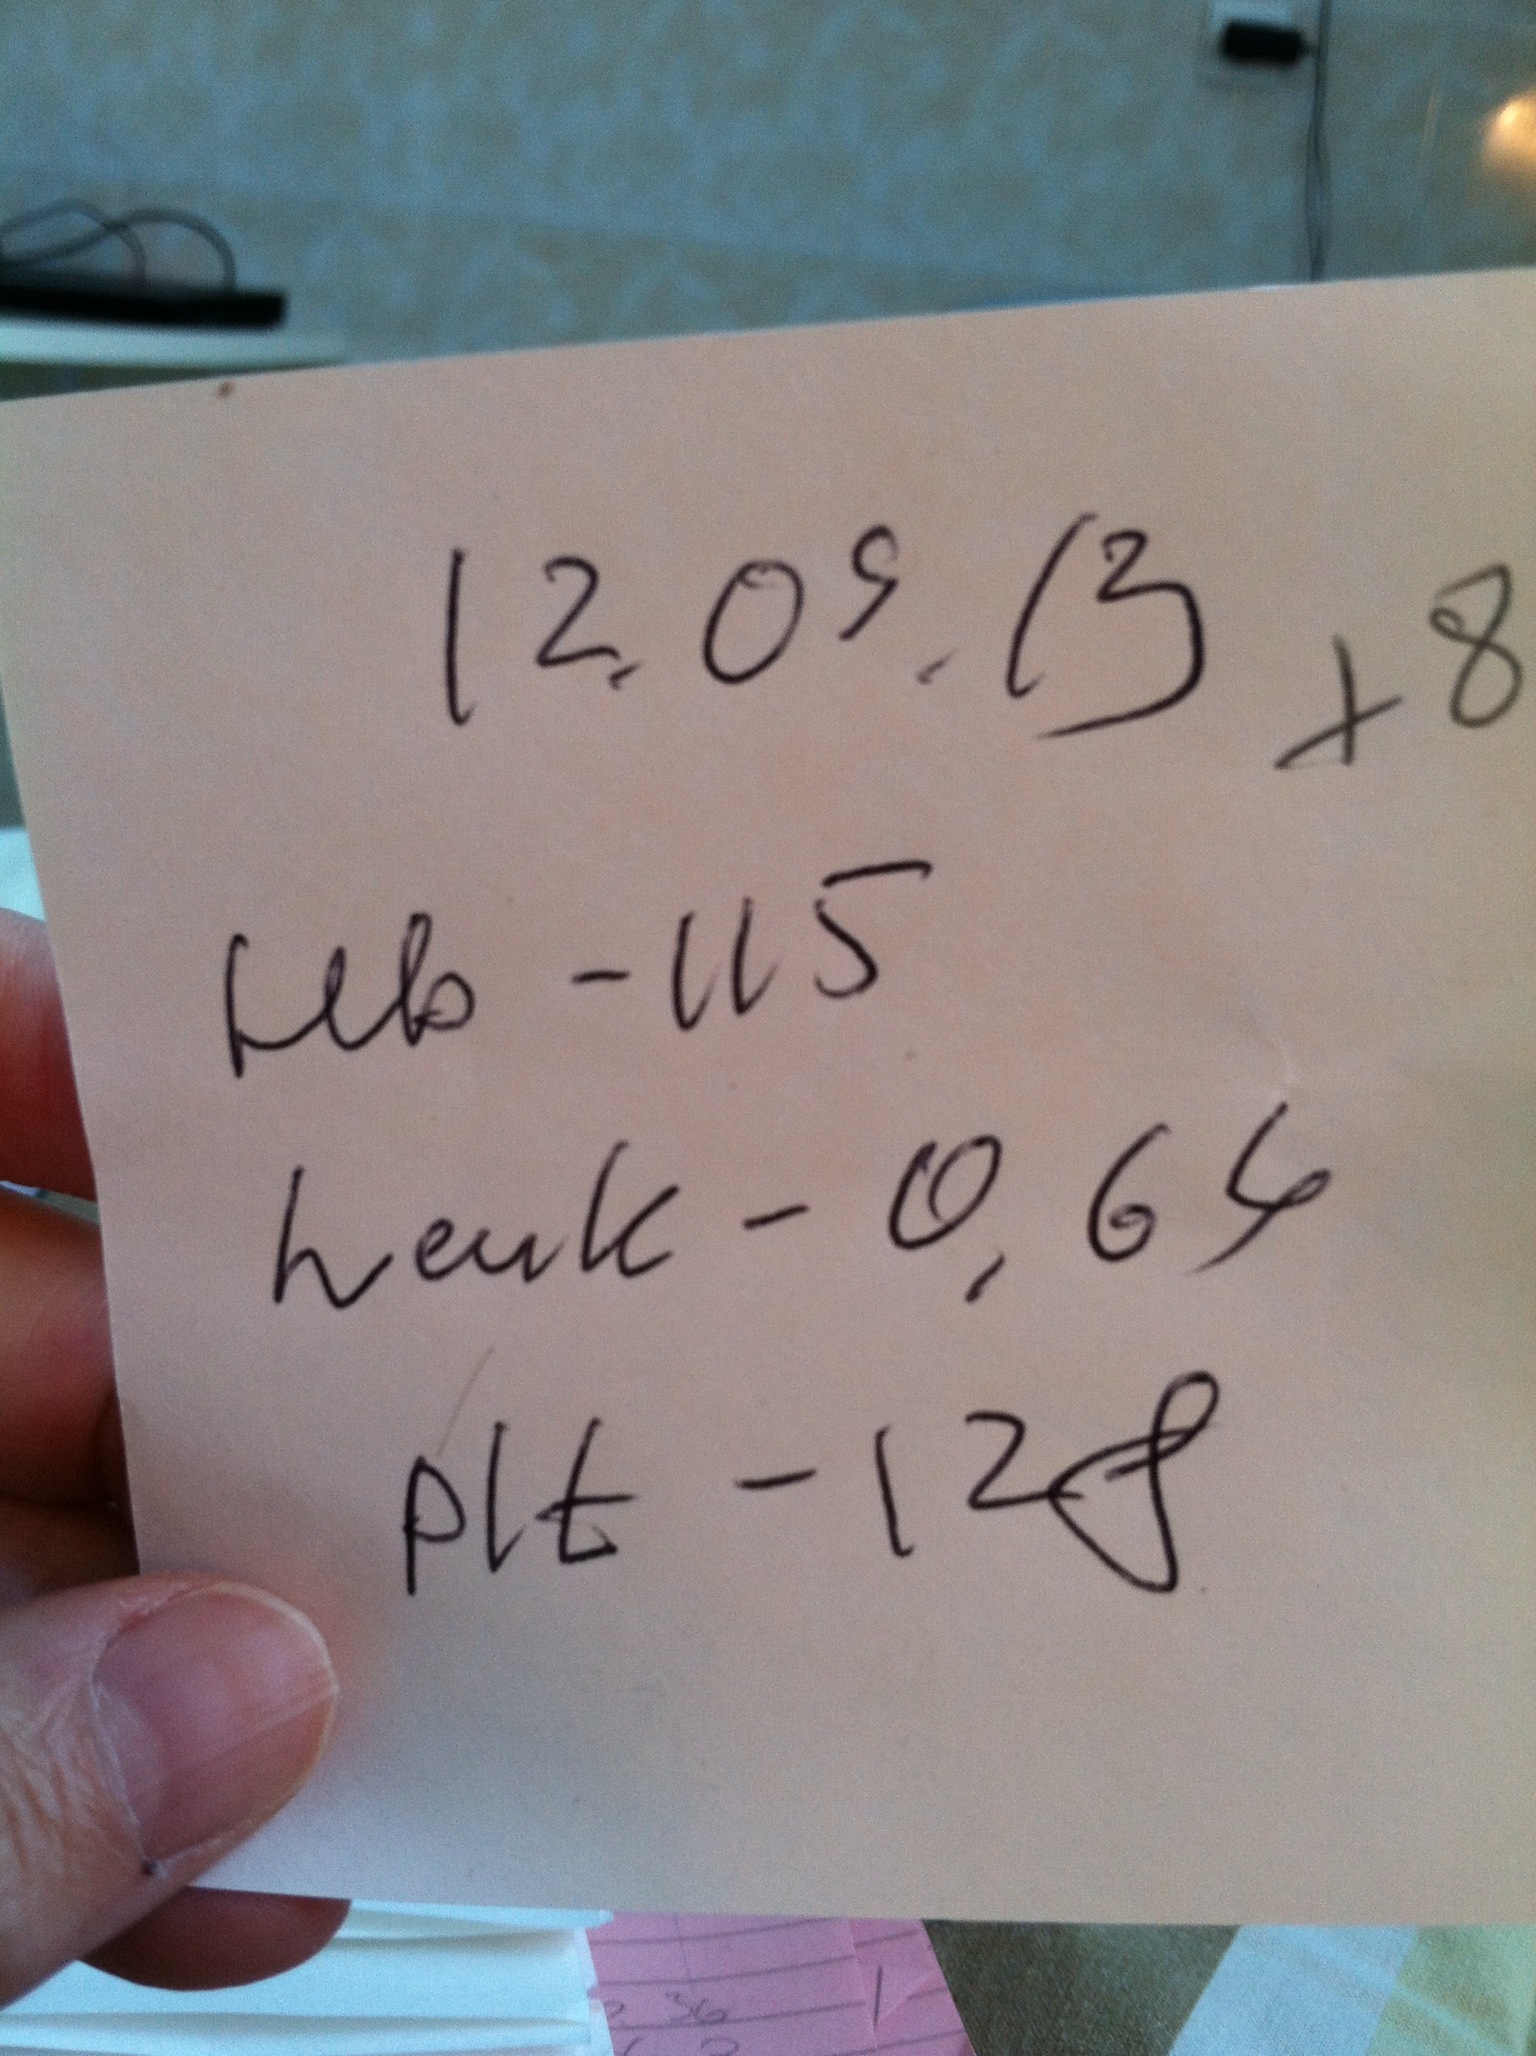 12.09.13 +8
Hb - 115
Leuk - 0,64
plt - 128
36